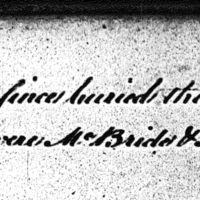 since buried th
McBride &